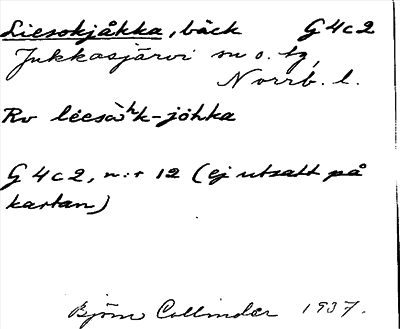 Liesokjåkka, bäck G4c2
Jukkasjärvi sn o. tg,
Norrb. l.
Rv liesàʰk-jòhka
G 4c2, n:r 12 (ej utsatt på
kartan)
Björn Collinder 1937.